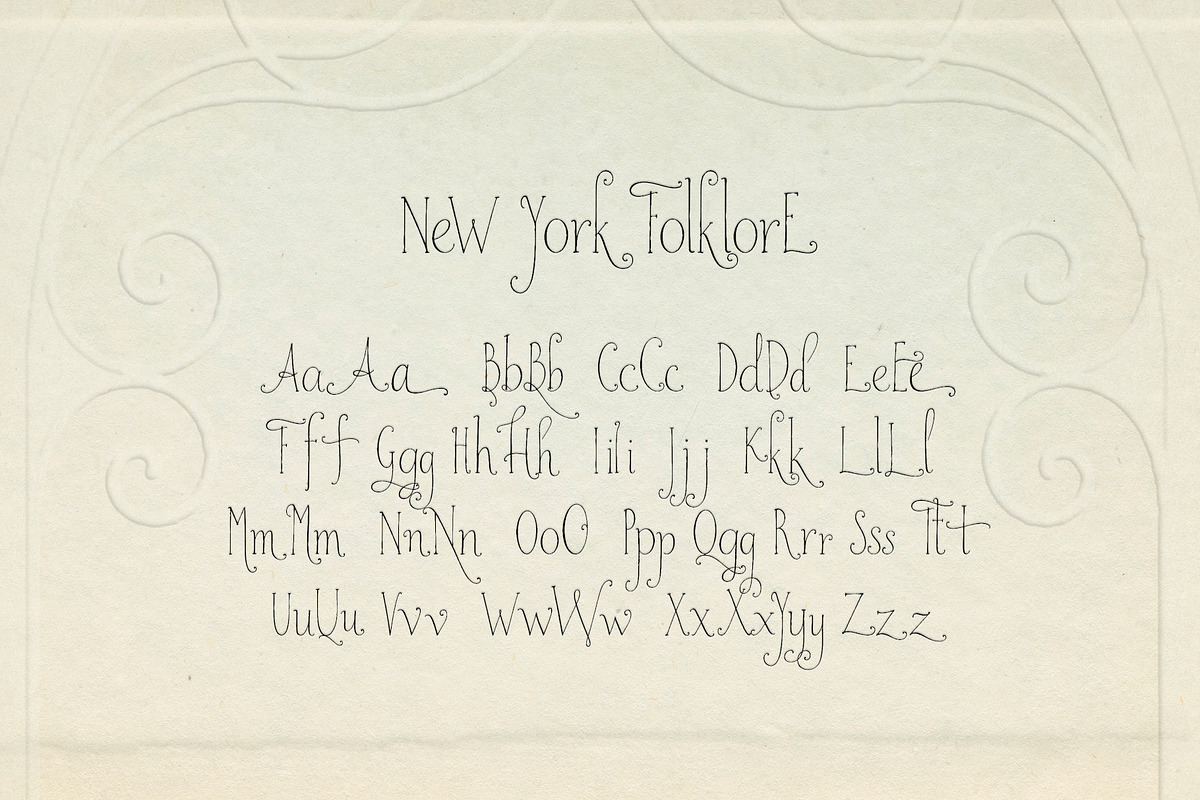 NeW York FolklorE
AaAa BbBb CcCc DdDd EeEe
Fff Ggg HhHh Iili Jjj Kkk LlLl
MmMm NnNn OoO Ppp Qqq Rrr Sss Ttt
UuUu Vvv WwWw XxXxYyy Zzz